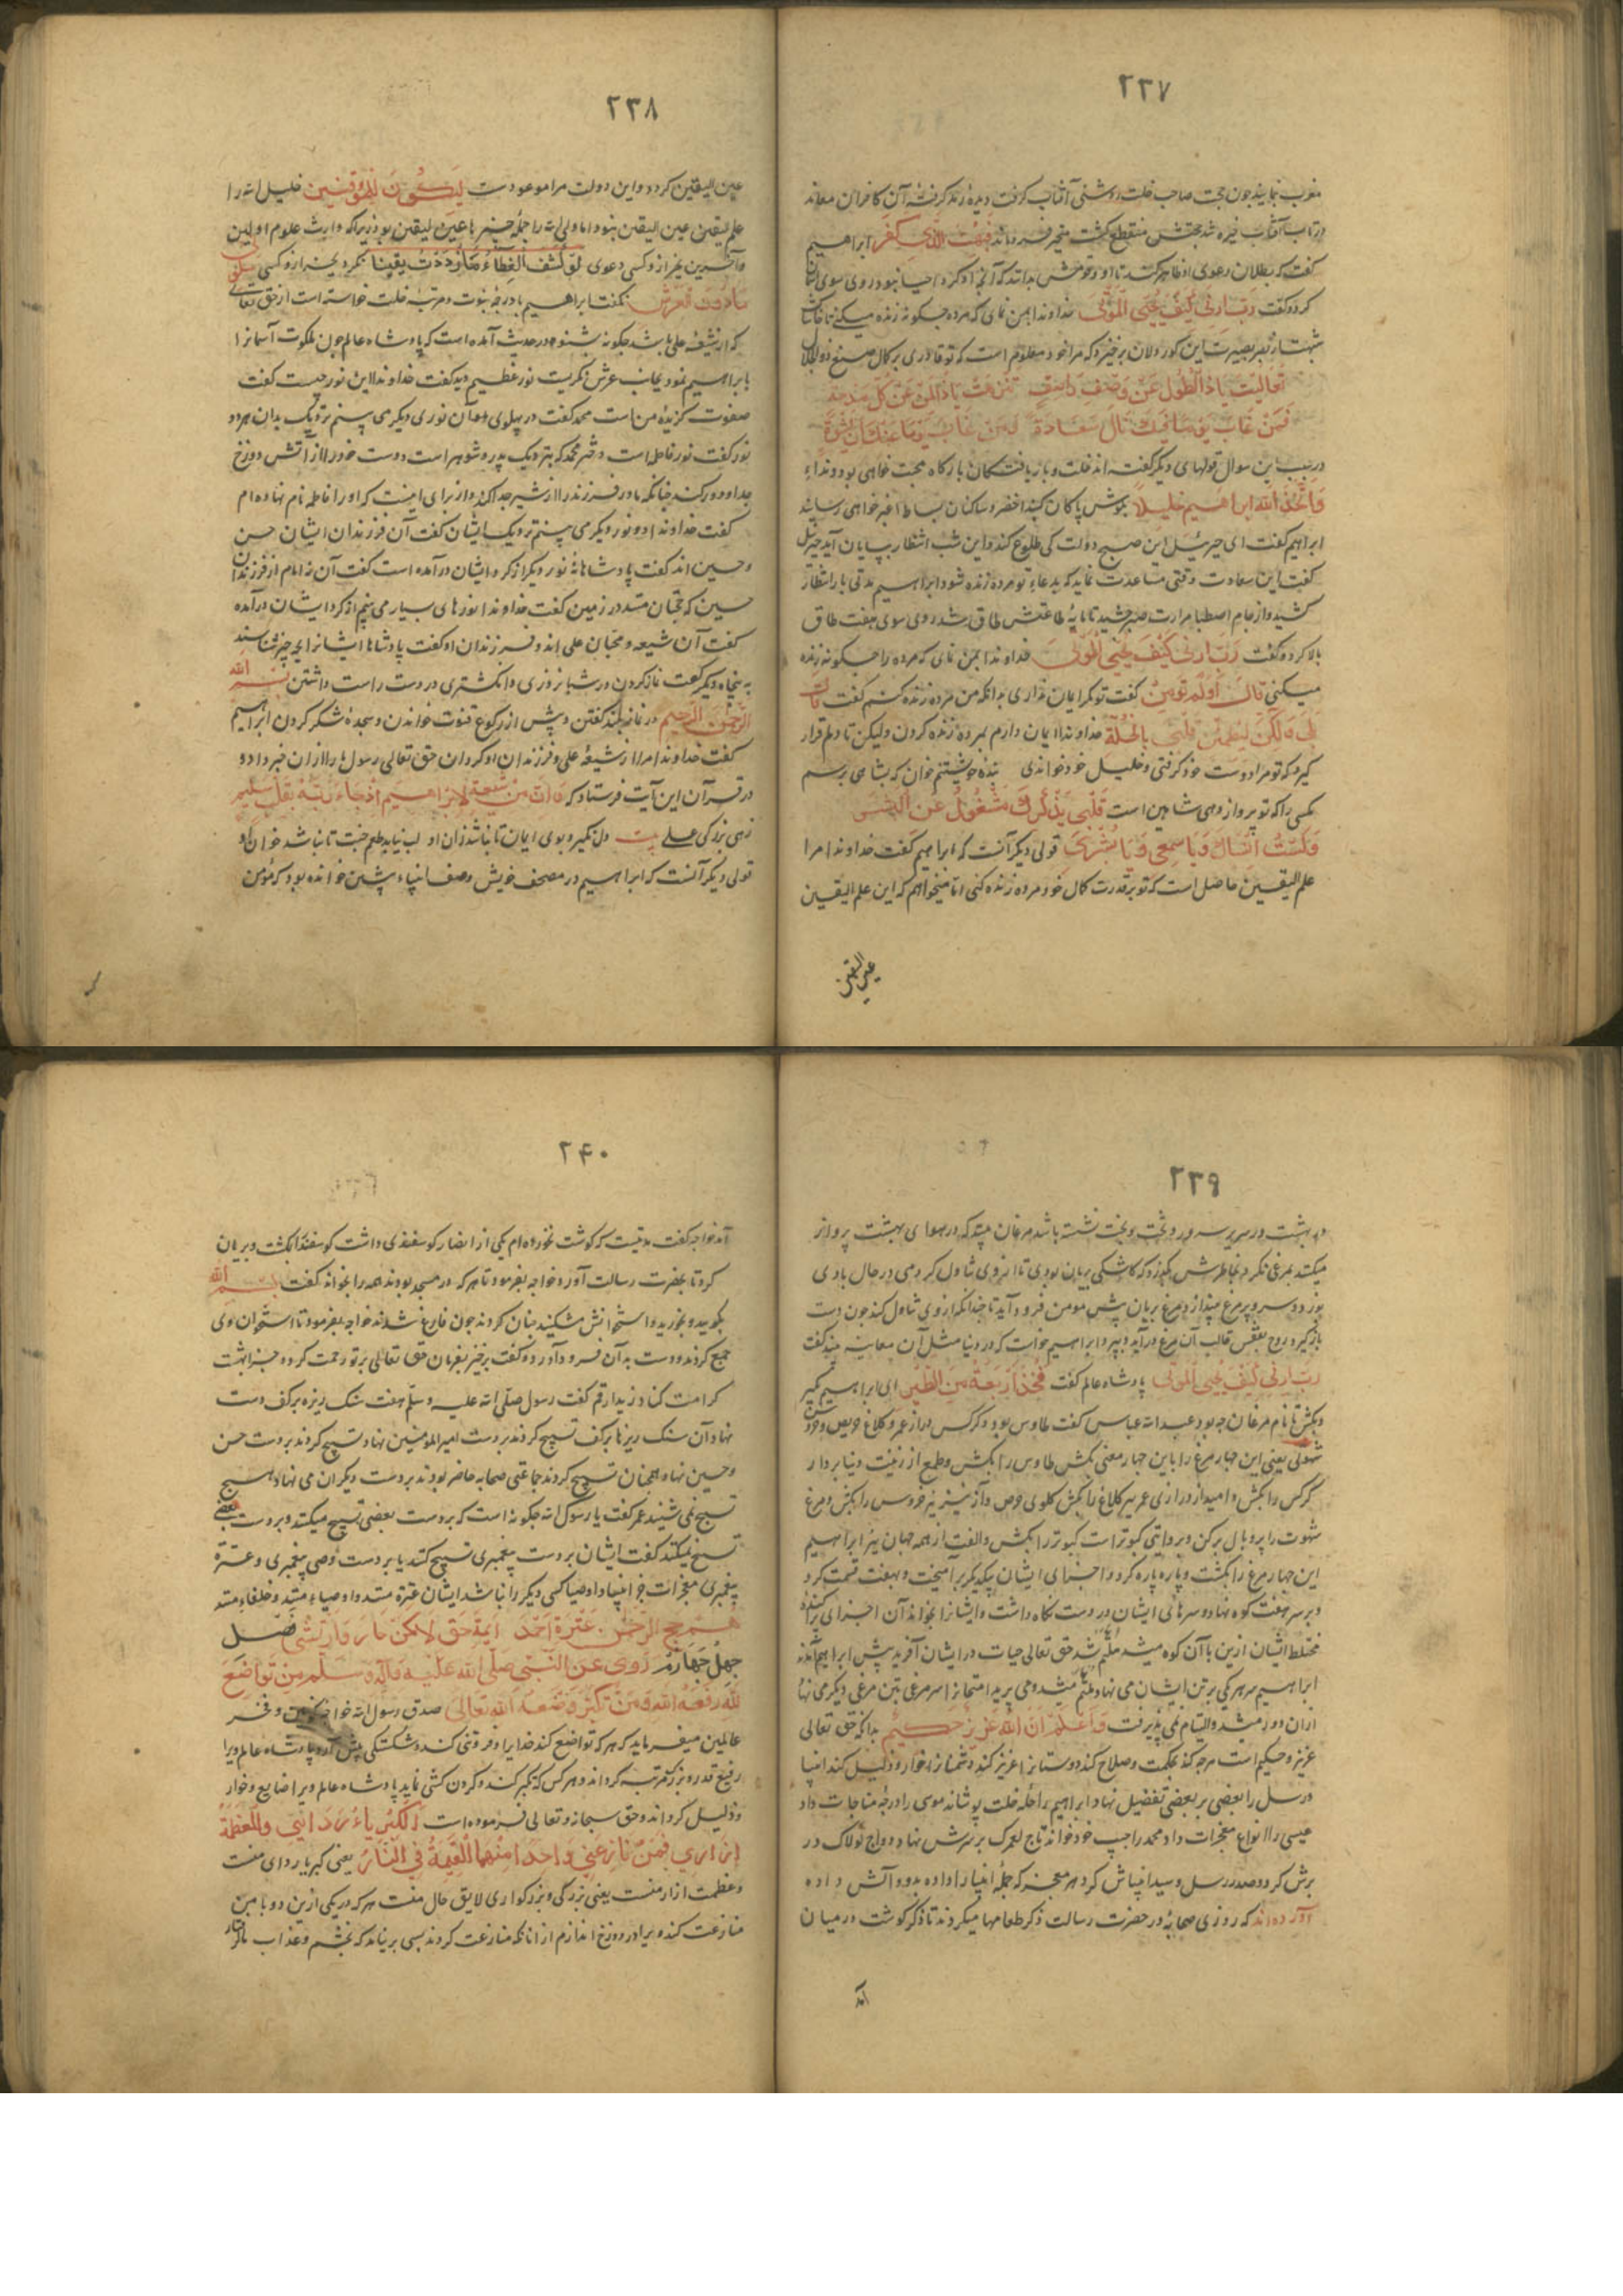 ۲۳۷
مغرب نمایید چون حجت صاحب خلت روشنی آفتاب گرفت دیدهٔ رمد گرفتهٔ آن کافران معاند
در تاب آفتاب خیره شد حجتش منقطع گشت متحیر فرو ماند فَبُهِتَ الَّذِی کَفَرَ ابراهیم
گفت که بطلان دعوی او ظاهر کند تا او و قومش بدانند که آنچه او کرد احیا نبود روی سوی آسمان
کرد و گفت رَبِّ اَرِنِی کَیْفَ تُحْیِی الْمَوْتَی خداوندا بمن نمای که مرده چگونه زنده میکنی تا خاشاک
شبهت از بصر بصیرت این کور دلان برخیزد که مرا خود معلوم است که تو قادری بر کمال صنع ذوالجلال
تعالیت یا ذا الطول عن وصف واصف تنزهت یا ذا المن عن کل
فمن غاب یوما نال سعادة فمن غاب یوما عنک
در سبب این سوال قولهای دیگر گفته اند خلت و باز یافتگان بارگاه محبت خواهی بود و نداء
وَاتَّخَذَ اللّٰهُ اِبْرَاهِیمَ خَلِیلًا بگوش پاکان گنبد اخضر و ساکنان بساط اغبر خواهی رسانید
ابراهیم گفت ای جبرئیل این صبح دولت کی طلوع کند و این شب انتظار بپایان آید جبرئیل
گفت این سعادت وقتی مساعدت نماید که بدعاء تو مرده زنده شود ابراهیم مدتی بار انتظار
کشید و از جام اصطبار مرارت صبر چشید تا پایهٔ طاقتش طاق شد روی سوی هفت طاق
بالا کرد و گفت رَبِّ اَرِنِی کَیْفَ تُحْیِی الْمَوْتَی خداوندا بمن نمای که مرده را چگونه زنده
میکنی قَالَ اَوَلَمْ تُؤْمِنْ گفت تو مگر ایمان نداری بدانکه من مرده زنده کنم گفت قَالَ
بَلَی وَلَکِنْ لِیَطْمَئِنَّ قَلْبِی بِالْخُلَّةِ خداوندا ایمان دارم بمرده زنده کردن ولیکن تا دلم قرار
گیرد که تو مرا دوست خود گرفتی و خلیل خود خواندی بنده خویشتنم خوان که بشاهی برسم
مگسی را که تو پرواز دهی شاهین است قلبی بذکرک مشغول عن البشر
قولی دیگر آنست که ابراهیم گفت خداوندا مرا
علم الیقین حاصل است که تو بر قدرت کمال خود مرده زنده کنی اما میخواهم که این علم الیقین
عین الیقین
۲۳۸
عین الیقین گردد و این دولت مرا موعودست لیکون من الموقنین خلیل الله را
علم الیقین عین الیقین نبود اما ولی الله را جملهٔ چیزها عین الیقین بود زیرا که وارث علوم اولین
و آخرین بجز از و کسی دعوی لَوْ کُشِفَ الْغِطَاءُ مَا ازْدَدْتُ یَقِینًا نکرد بجز از و کسی سلونی
عما دون العرش نگفت ابراهیم با درجهٔ نبوت و مرتبهٔ خلت خواسته است از حق تعالی
که از شیعهٔ علی باشد چگونه بشنو در حدیث آمده است که پادشاه عالم چون ملکوت آسمانرا
بابراهیم نمود بجانب عرش نگریست نور عظیم دید گفت خداوندا این نور چیست گفت
صفوت گزیدهٔ من است محمد گفت در پهلوی آن نوری دیگر می بینم نزدیک بدان هر دو
نور گفت نور فاطمه است دختر محمد که نزدیک پدر و شوهر است دوست خود را از آتش دوزخ
جدا و دور کند چنانکه مادر فرزند را از شیر جدا کند و از برای اینست که او را فاطمه نام نهاده ام
گفت خداوندا دو نور دیگر می بینم نزدیک ایشان گفت آن فرزندان ایشان حسن
و حسین اند گفت پادشاها نه نور دیگر از گرد ایشان درآمده است گفت آن نه امام از فرزندان
حسین که حجتان منند در زمین گفت خداوندا نورهای بسیار می بینم از گرد ایشان درآمده
گفت آن شیعه و محبان علی اند و فرزندان او گفت پادشاها ایشانرا بچه چیز شناسند
به پنجاه و یک رکعت نماز کردن در شبانروزی و انگشتری در دست راست داشتن بسم الله
الرحمن الرحیم در نماز بلند گفتن و پیش از رکوع قنوت خواندن و سجدهٔ شکر کردن ابراهیم
گفت خداوندا مرا از شیعهٔ علی و فرزندان او گردان حق تعالی رسول ما را ازان خبر داد و
در قرآن این آیت فرستاد که وَاِنَّ مِنْ شِیعَتِهِ لَاِبْرَاهِیمَ اِذْ جَاءَ رَبَّهُ بِقَلْبٍ سَلِیمٍ
زهی بزرگی علی بیت دل نگیرد بوی ایمان تا نباشد زان او لب نیابد طعم جنت تا نباشد خوان او
قولی دیگر آنست که ابراهیم در مصحف خویش وصف انبیاء پیشین خوانده بود که مؤمن
۲۳۹
در بهشت در سریر سرور و تخت و بخت نشسته باشد مرغان بیند که در هوای بهشت پرواز
میکنند بمرغی نگرد بخاطرش بگذرد که کاشکی بریان بودی تا از وی تناول کردمی در حال بادی
بوزد و سر و پر مرغ بیندازد مرغ بریان پیش مومن فرود آید تا چندانکه از وی تناول کند چون دست
بازگیرد روح بقفس قالب آن مرغ درآید و بپرد ابراهیم خواست که در دنیا مثل آن معاینه بیند گفت
رَبِّ اَرِنِی کَیْفَ تُحْیِی الْمَوْتَی پادشاه عالم گفت فَخُذْ اَرْبَعَةً مِنَ الطَّیْرِ ای ابراهیم بگیر
و بکش تا نام مرغان چه بود عبدالله عباس گفت طاوس بود و کرکس دراز عمر و کلاغ حریص و خروس
شهوتی یعنی این چهار مرغ را باین چهار معنی بکش طاوس را بکش و طمع از زینت دنیا بردار
کرکس را بکش و امید از درازی عمر ببر کلاغ را بکش گلوی حرص و آز نیز ببر خروس را بکش و مرغ
شهوت را پر و بال برکن و بروایتی کبوتر است کبوتر را بکش و الفت از همه جهان ببر ابراهیم
این چهار مرغ را بکشت و پاره پاره کرد و اجزای ایشان بیکدیگر برآمیخت و بهفت قسمت کرد
و بر سر هفت کوه نهاد و سرهای ایشان در دست نگاه داشت و ایشانرا بخواند آن اجزای پراکنده
مختلط ایشان ازین با آن کوه میشد ملتئم شد حق تعالی حیات در ایشان آفرید پیش ابراهیم آمدند
ابراهیم سر هر یکی بر تن ایشان می نهاد ملتئم میشد و می پرید امتحانرا سر مرغی بتن مرغی دیگر می نهاد
ازان دور میشد و التیام نمی پذیرفت وَاعْلَمْ اَنَّ اللّٰهَ عَزِیزٌ حَکِیمٌ بدانکه حق تعالی
عزیز و حکیم است هرچه کند بحکمت و صلاح کند دوستانرا عزیز کند و دشمنانرا خوار و ذلیل کند انبیا
و رسل را بعضی بر بعضی تفضیل نهاد ابراهیم را حلهٔ خلت پوشانید موسی را درجهٔ مناجات داد
عیسی را انواع معجزات داد محمد را حبیب خود خواند تاج لعمرک بر سرش نهاد و دواج لولاک در
برش کرد و صدر رسل و سید انبیاش کرد هر معجزه که جملهٔ انبیا را داده بود و آتش داده
آورده اند که روزی صحابه در حضرت رسالت ذکر طعامها میکردند تا ذکر گوشت در میان
آمد
۲۴۰
آمد خواجه گفت مدتیست که گوشت نخورده ام یکی از انصار گوسفندی داشت گوسفند را بکشت و بریان
کرد تا بحضرت رسالت آورد خواجه بفرمود تا هر که در مسجد بودند همه را بخواند گفت بسم الله
بگویید و بخورید و استخوانش مشکنید چنان کردند چون فارغ شدند خواجه بفرمود تا استخوان وی
جمع کردند و دست بدان فرود آورد و گفت برخیز بفرمان حق تعالی برتو رحمت کرد و جزا بهشت
کرامت کناد زید ارقم گفت رسول صلی الله علیه و سلم هفت سنگ ریزه بر کف دست
نهاد آن سنگ ریزها بر کف تسبیح کردند بر دست امیرالمومنین نهاد تسبیح کردند بر دست حسن
و حسین نهاد همچنان تسبیح کردند جماعتی صحابه حاضر بودند بر دست دیگران می نهاد هیچ
تسبیح نمی شنید عمر گفت یا رسول الله چگونه است که بر دست بعضی تسبیح میکنند و بر دست بعضی
تسبیح نمیکنند گفت ایشان بر دست پیغمبری تسبیح کنند یا بر دست وصی پیغمبری و عترة
پیغمبری معجزات جز انبیا و اوصیا کسی دیگر را نباشد ایشان عترة منند و اوصیاء منند و خلفاء منند
هم حجج الرحمن عترة احمد ایمة حق فصل
چهل چهارم روی عن النبی صلی الله علیه و آله و سلم من تواضع
لله رفعه الله و من تکبر وضعه الله تعالی صدق رسول الله خواجه کونین و فخر
عالمین میفرماید که هر که تواضع کند خدایرا و فروتنی کند و شکستگی پیش آرد پادشاه عالم ویرا
رفیع قدر و بزرگ مرتبه گرداند و هر کس که تکبر کند و گردن کشی نماید پادشاه عالم ویرا ضایع و خوار
و ذلیل گرداند و حق سبحانه و تعالی فرموده است الکبریاء ردائی والعظمة
ازاری فمن نازعنی واحدا منهما القیته فی النار یعنی کبریا ردای منست
و عظمت ازار منست یعنی بزرگی و بزرگواری لایق حال منست هر که در یکی ازین دو با من
منازعت کند ویرا در دوزخ اندازم از آنانکه منازعت کردند بسی برنیامد که بخشم و عذاب ما گرفتار